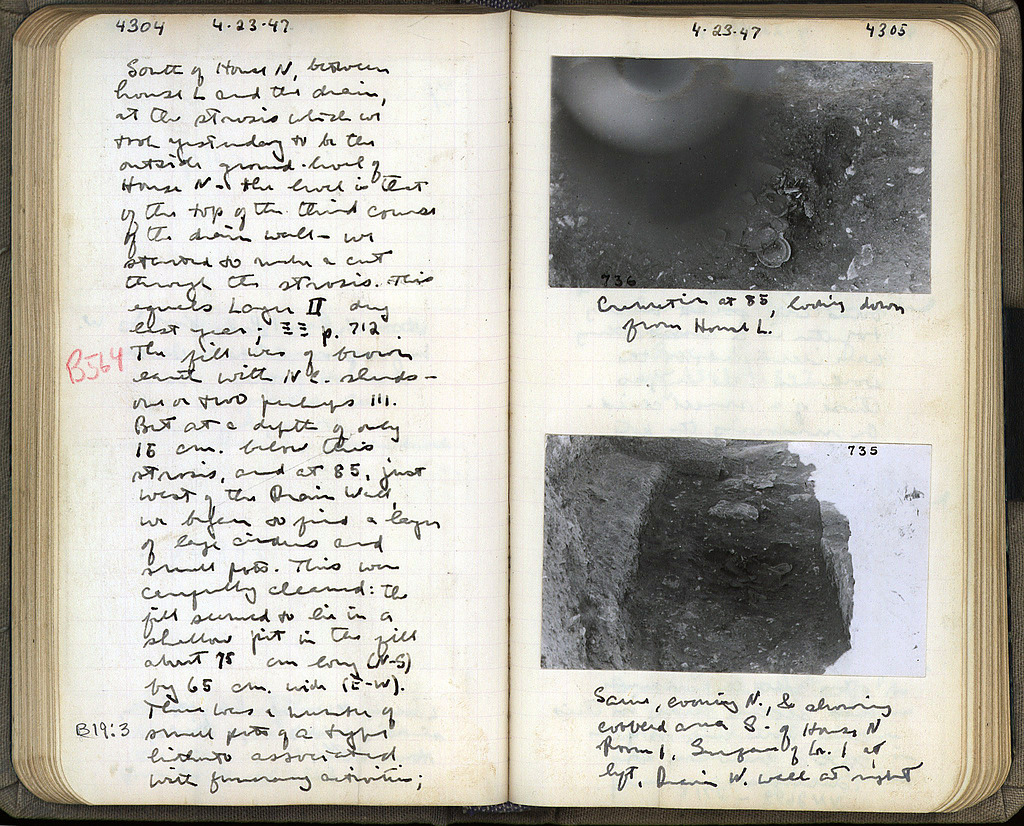 4304 4·23·47
South of House N, between
house L and the drain,
at the strosis which we
took yesterday to be the
outside ground-level of
House N - the level is that
of the top of the third course
of the drain wall - we
started to make a cut
through the strosis. This
equals Layer II dug
last year; ΞΞ p. 712
B564
The fill was of brown
earth with sherds -
one or two perhaps III.
But at a depth of only
15 cm. below this
strosis, and at 85, just
west of the Drain Wall,
we began to find a layer
of large cinders and
small pots. This was
carefully cleaned: the
fill seemed to lie in a
shallow pit in the fill
about 75 cm long (N-S)
by 65 cm. wide (E-W).
There was a number of
B19:3
small pots of a type
hitherto associated
with funerary activities;
4·23·47 4305
736
Cremation at 85, looking down
from House L.
735
Same, N., & showing
area S. of House N
Room 1, of Gr. 1 at
left, Drain W. wall at right